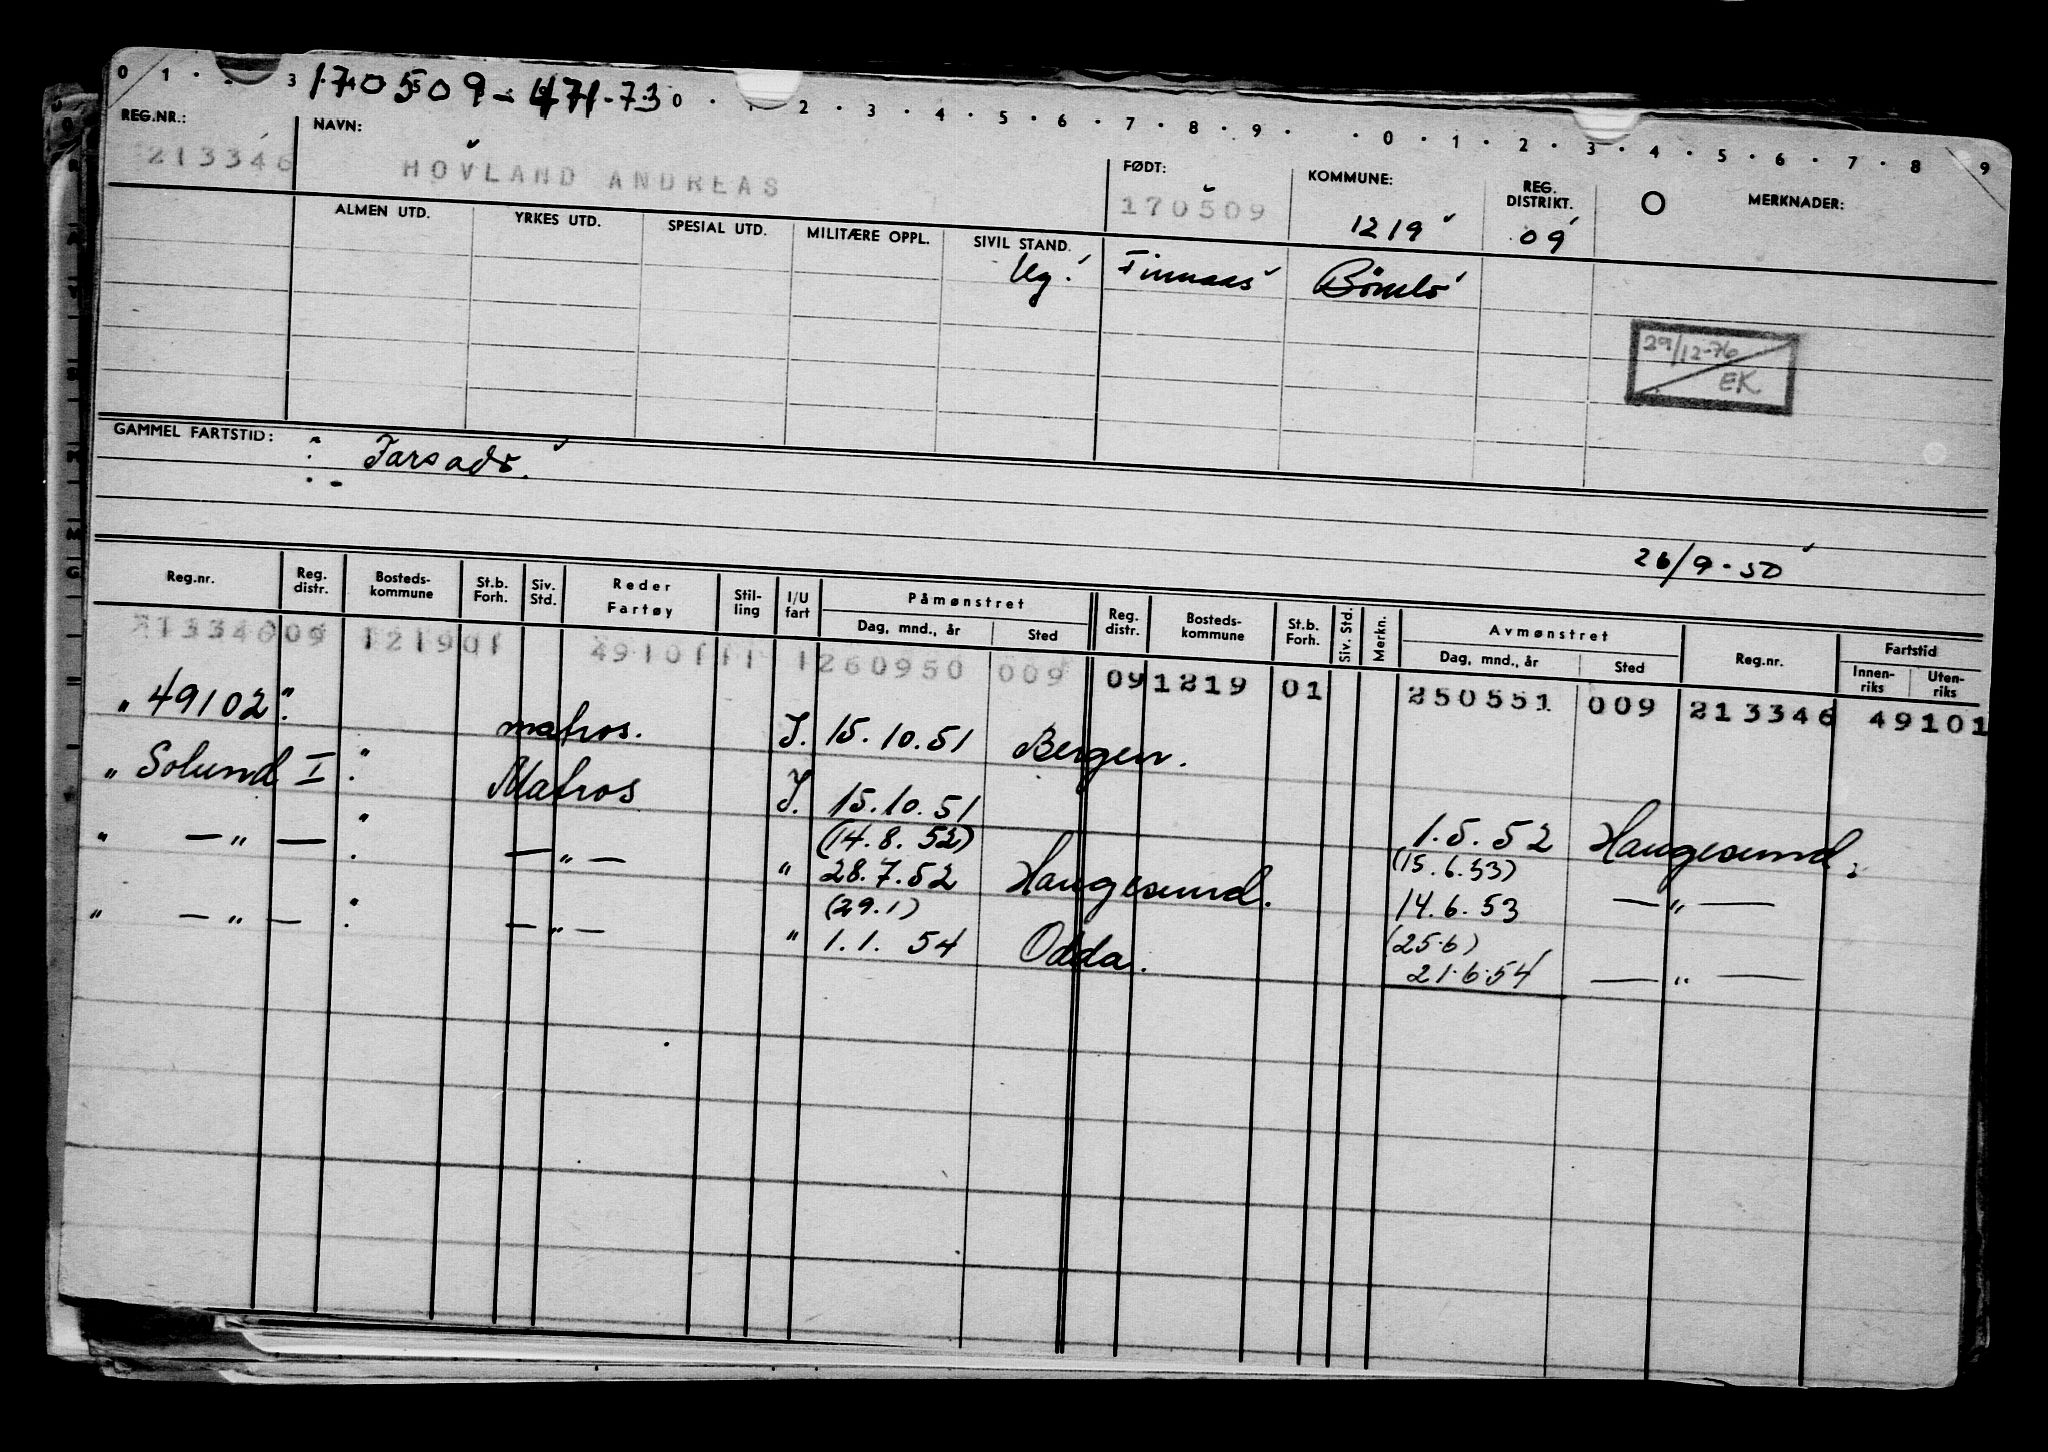 0 1 · · 3 170509-471-73 0 · 1 · 2 · 3 · 4 · 5 · 6 · 7 · 8 · 9 · · 0 · 1 · 2 · 3 · 4 · 5 · 6 · 7 · 8 9
REG.NR.: NAVN: FØDT: KOMMUNE: REG. DISTRIKT. MERKNADER:
213346 HOVLAND ANDREAS 170509 1219 09
ALMEN UTD. YRKES UTD. SPESIAL UTD. MILITÆRE OPPL. SIVIL STAND.
Ug. Finnaas Bömlo
29/12-76
EK
GAMMEL FARTSTID:
26/9-50
Reg.nr. Reg. distr. Bosteds-kommune St.b. Forh. Siv. Std. Reder Fartøy Stil-ling I/U fart Påmønstret Dag, mnd., år Sted Reg. distr. Bosteds-kommune St.b. Forh. Siv. Std. Merkn. Avmønstret Dag, mnd., år Sted Reg.nr. Fartstid Innen-riks Uten-riks
213346 09 1219 01 4910111 1 260950 009 09 1219 01 250551 009 213346 49101
„ 49102 " matros. I. 15.10.51 Bergen.
„ Solund I " Matros I. 15.10.51 1.5.52 Haugesund.
(14.8.52) (15.6.53)
" — „ — " — „ — " 28.7.52 Haugesund. 14.6.53 — „ —
(29.1) (25.6)
" — „ — " — „ — " 1.1.54 Odda. 21.6.54 — „ —